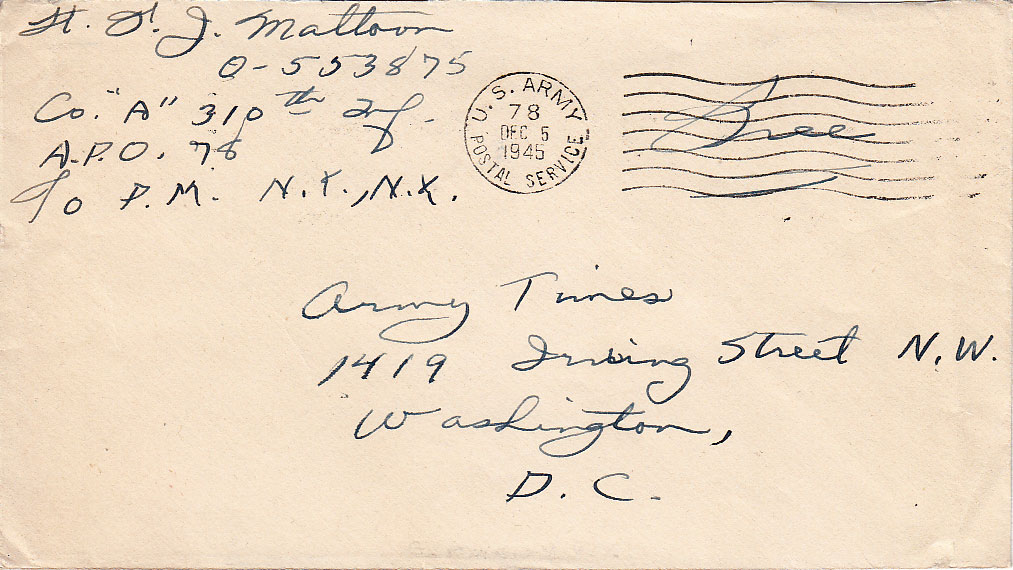 Lt. D. J. Mattoon
O-553875
Co. "A" 310th Inf.
A.P.O. 78
c/o P.M. N.Y., N.Y.
U.S. ARMY
78
DEC 5
1945
POSTAL SERVICE
Free
Army Times
1419 Irving Street N.W.
Washington,
D.C.